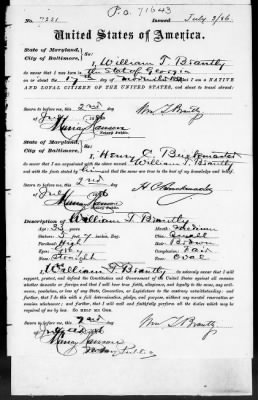 P.o. 71643
No. 7221 Issued July 3/86
United States of America.
State of Maryland,
City of Baltimore, } ss.
I, William T. Brantly
do swear that I was born in the State of Georgia
on or about the day of and that I am a NATIVE
AND LOYAL CITIZEN OF THE UNITED STATES, and about to travel abroad.
Sworn to before me, this 2nd day
of July 1886 Wm T. Brantly
Murray Hanson
Notary Public.
State of Maryland,
City of Baltimore, } ss.
I, Henry C.
do swear that I am acquainted with the above named William T. Brantly
and with the facts stated by him and that the same are true to the best of my knowledge and belief.
Sworn to before me, this 2nd day
of July 1886
Murray Hanson
Notary Public.
Description of William T. Brantly
Age
Stature
Forehead High
Eyes
Nose Straight
Mouth Medium
Chin Small
Hair Brown
Complexion Fair
Face Oval
I, William T. Brantly do solemnly swear that I will
support, protect, and defend the Constitution and Government of the United States against all enemies,
whether domestic or foreign; and that I will bear true faith, allegiance, and loyalty to the same, any ordi-
nance, resolution, or law of any State, Convention, or Legislature to the contrary notwithstanding; and
further, that I do this with a full determination, pledge, and purpose, without any mental reservation or
evasion whatsoever; and further, that I will well and faithfully perform all the duties which may be
required of me by law. So help me God.
Sworn to before me, this 2nd day
of July 1886 Wm T. Brantly
Murray Hanson
Notary Public